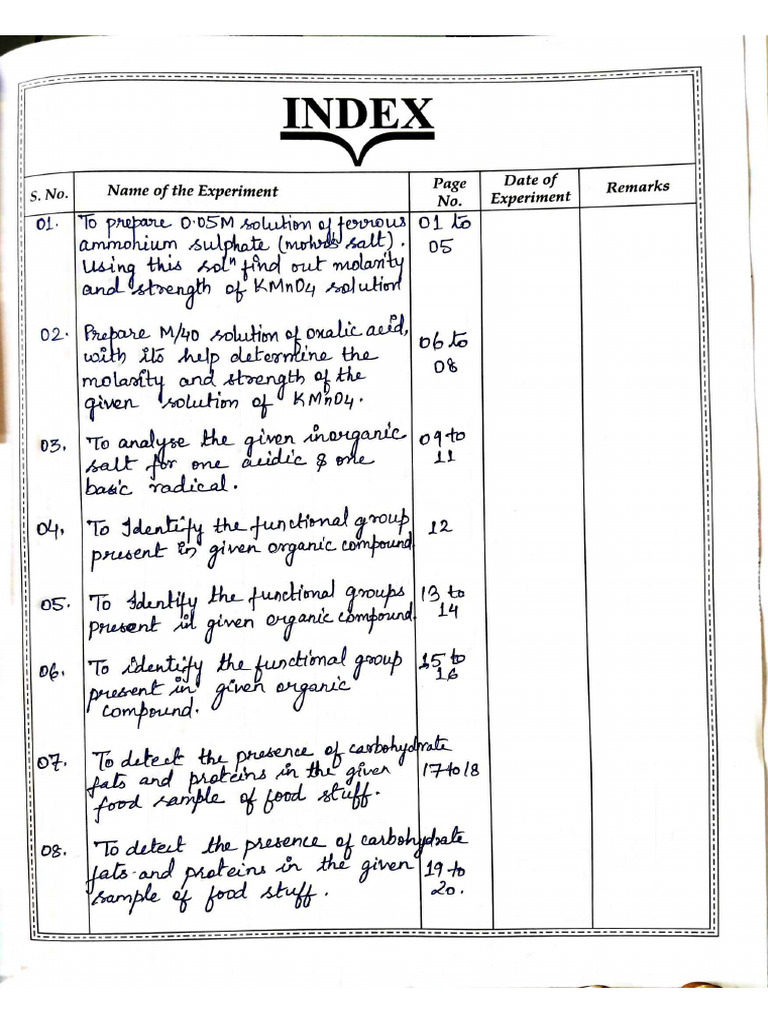 INDEX
S. No. Name of the Experiment Page No. Date of Experiment Remarks
01. To prepare 0.05M solution of ferrous 01 to
ammonium sulphate (mohrs salt). 05
Using this solⁿ find out molarity
and strength of KMnO4 solution
02. Prepare M/40 solution of oxalic acid, 06 to
with its help determine the 08
molarity and strength of the
given solution of KMnO4.
03. To analyse the given inorganic 09 to
salt for one acidic & one 11
basic radical.
04. To Identify the functional group 12
present in given organic compound
05. To Identify the functional groups 13 to
present in given organic compound. 14
06. To identify the functional group 15 to
present in given organic 16
compound.
07. To detect the presence of carbohydrate
fats and proteins in the given 17 to 18
food sample of food stuff.
08. To detect the presence of carbohydrate
fats and proteins in the given 19 to
sample of food stuff. 20.